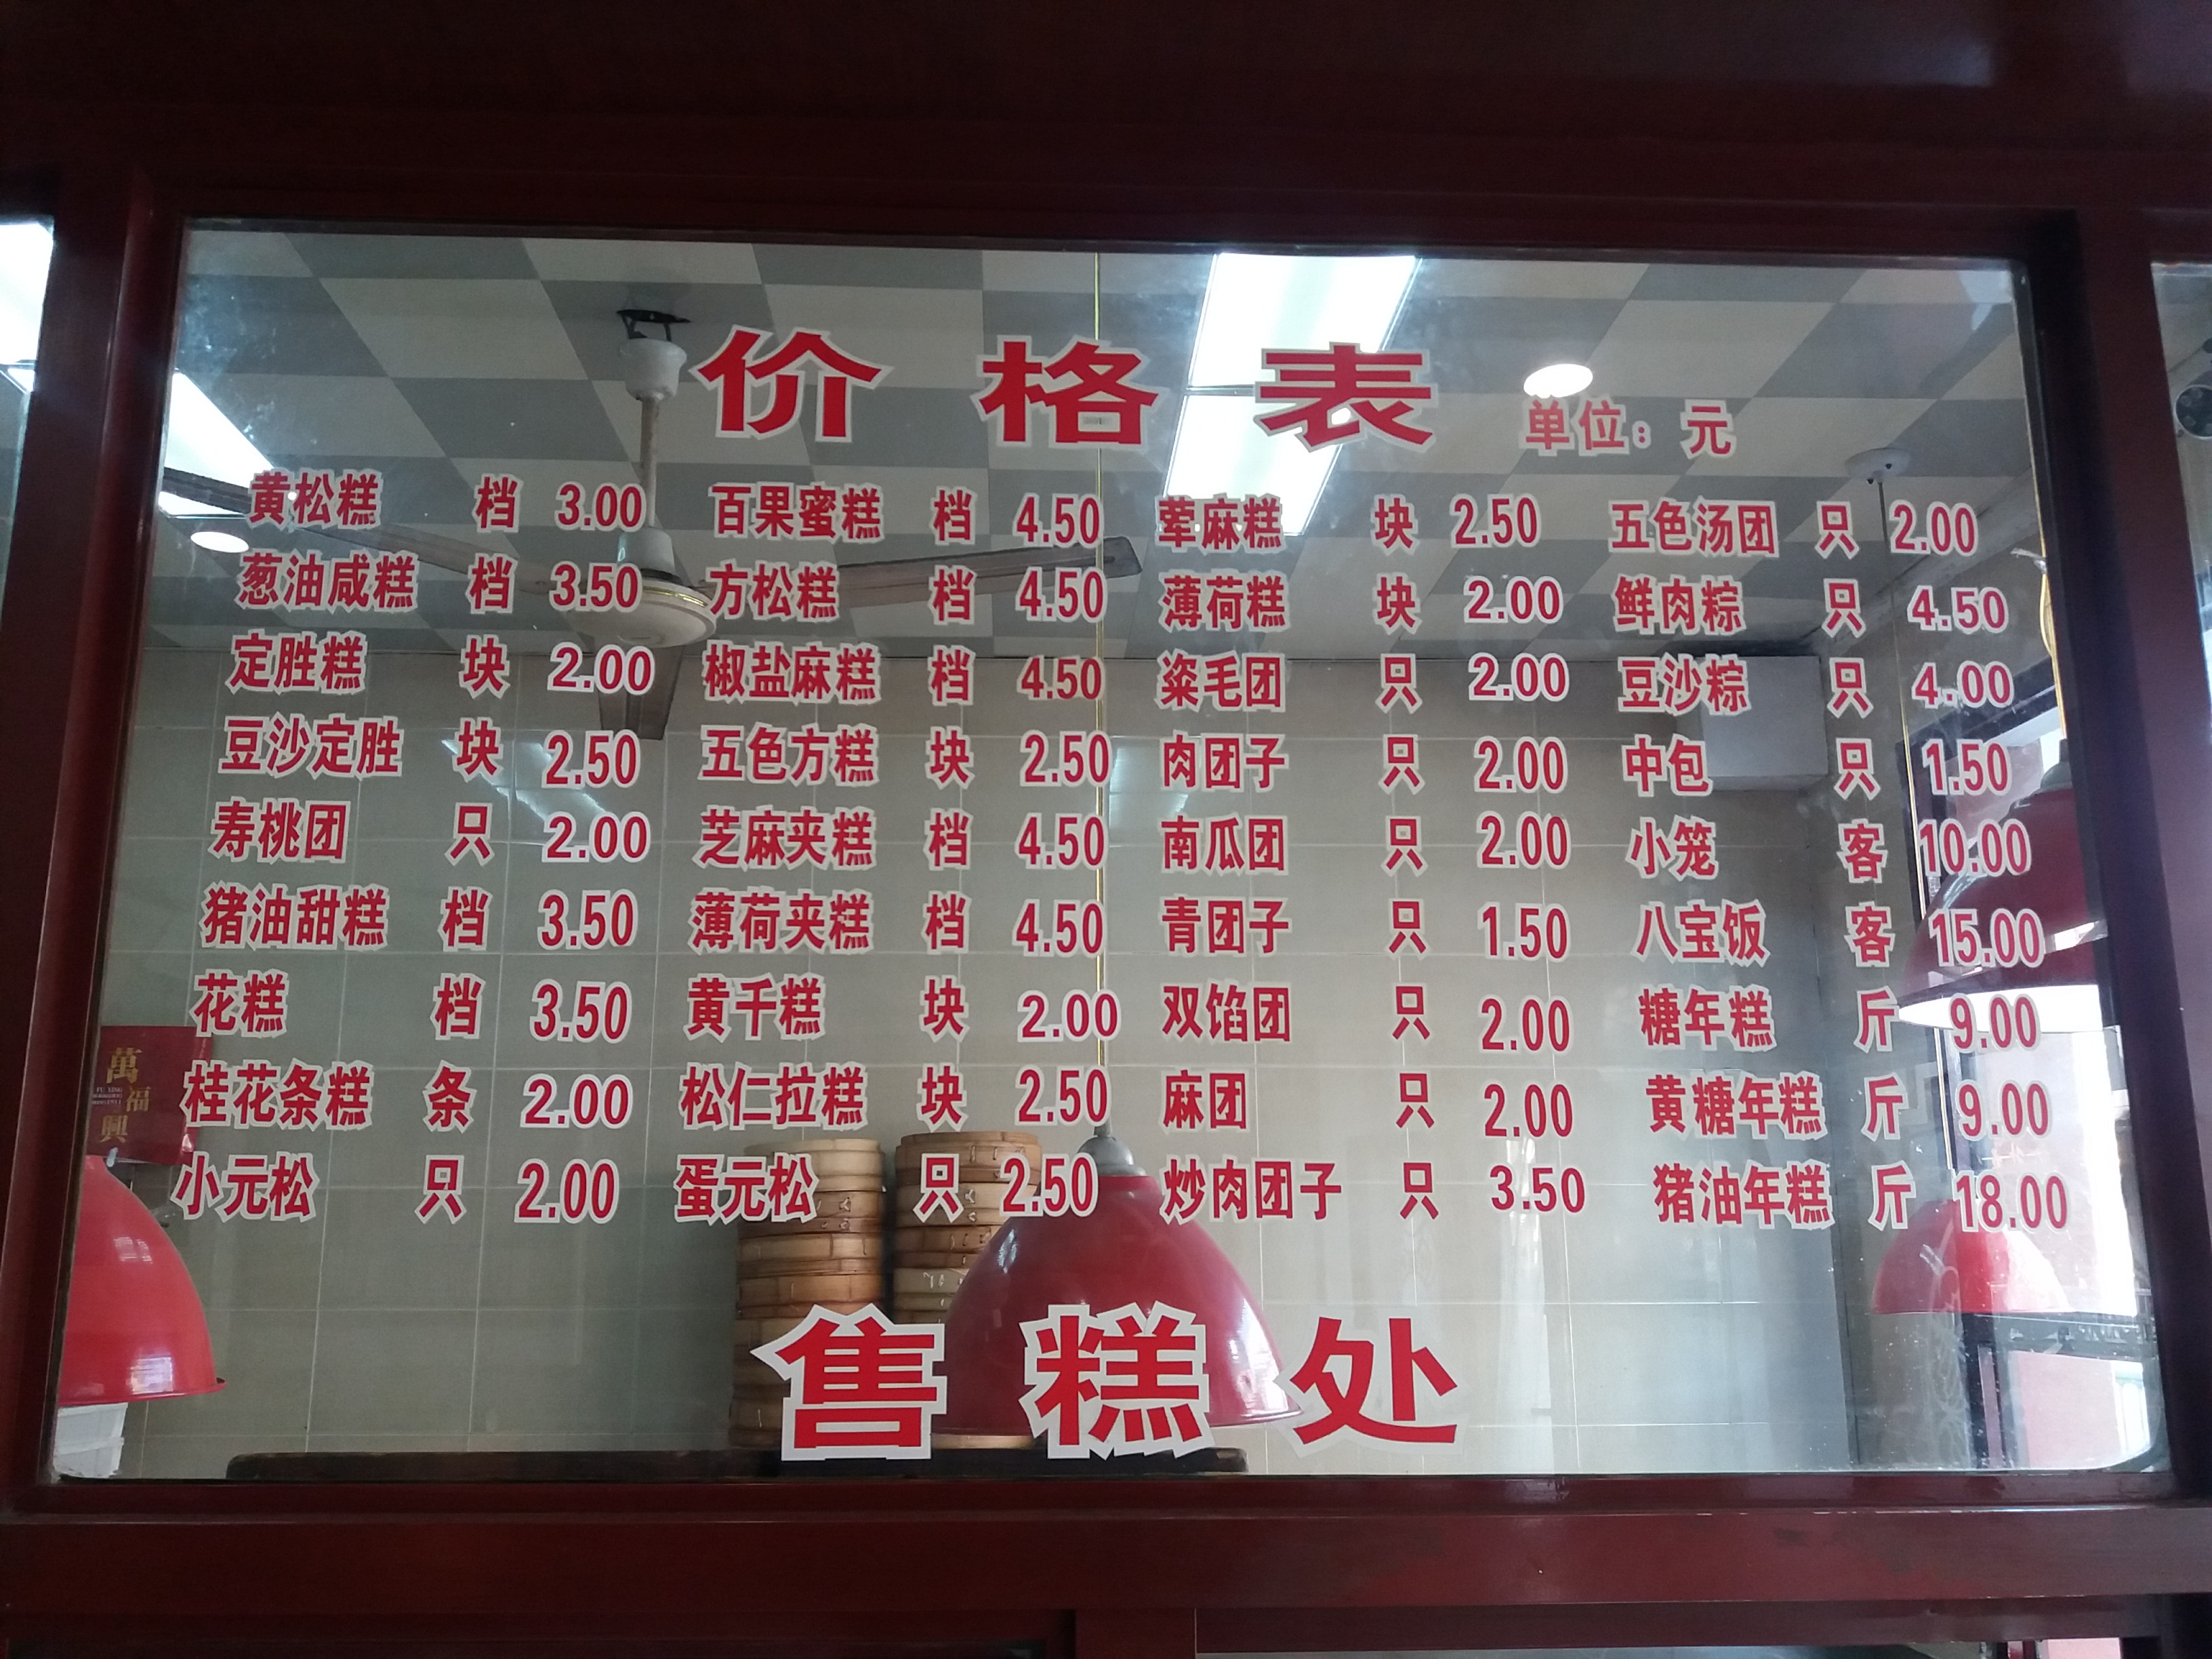 价格表 单位：元
黄松糕 档 3.00 百果蜜糕 档 4.50 荤麻糕 块 2.50 五色汤团 只 2.00
葱油咸糕 档 3.50 方松糕 档 4.50 薄荷糕 块 2.00 鲜肉粽 只 4.50
定胜糕 块 2.00 椒盐麻糕 档 4.50 粢毛团 只 2.00 豆沙粽 只 4.00
豆沙定胜 块 2.50 五色方糕 块 2.50 肉团子 只 2.00 中包 只 1.50
寿桃团 只 2.00 芝麻夹糕 档 4.50 南瓜团 只 2.00 小笼 客 10.00
猪油甜糕 档 3.50 薄荷夹糕 档 4.50 青团子 只 1.50 八宝饭 客 15.00
花糕 档 3.50 黄千糕 块 2.00 双馅团 只 2.00 糖年糕 斤 9.00
桂花条糕 条 2.00 松仁拉糕 块 2.50 麻团 只 2.00 黄糖年糕 斤 9.00
小元松 只 2.00 蛋元松 只 2.50 炒肉团子 只 3.50 猪油年糕 斤 18.00
售糕处
萬福興